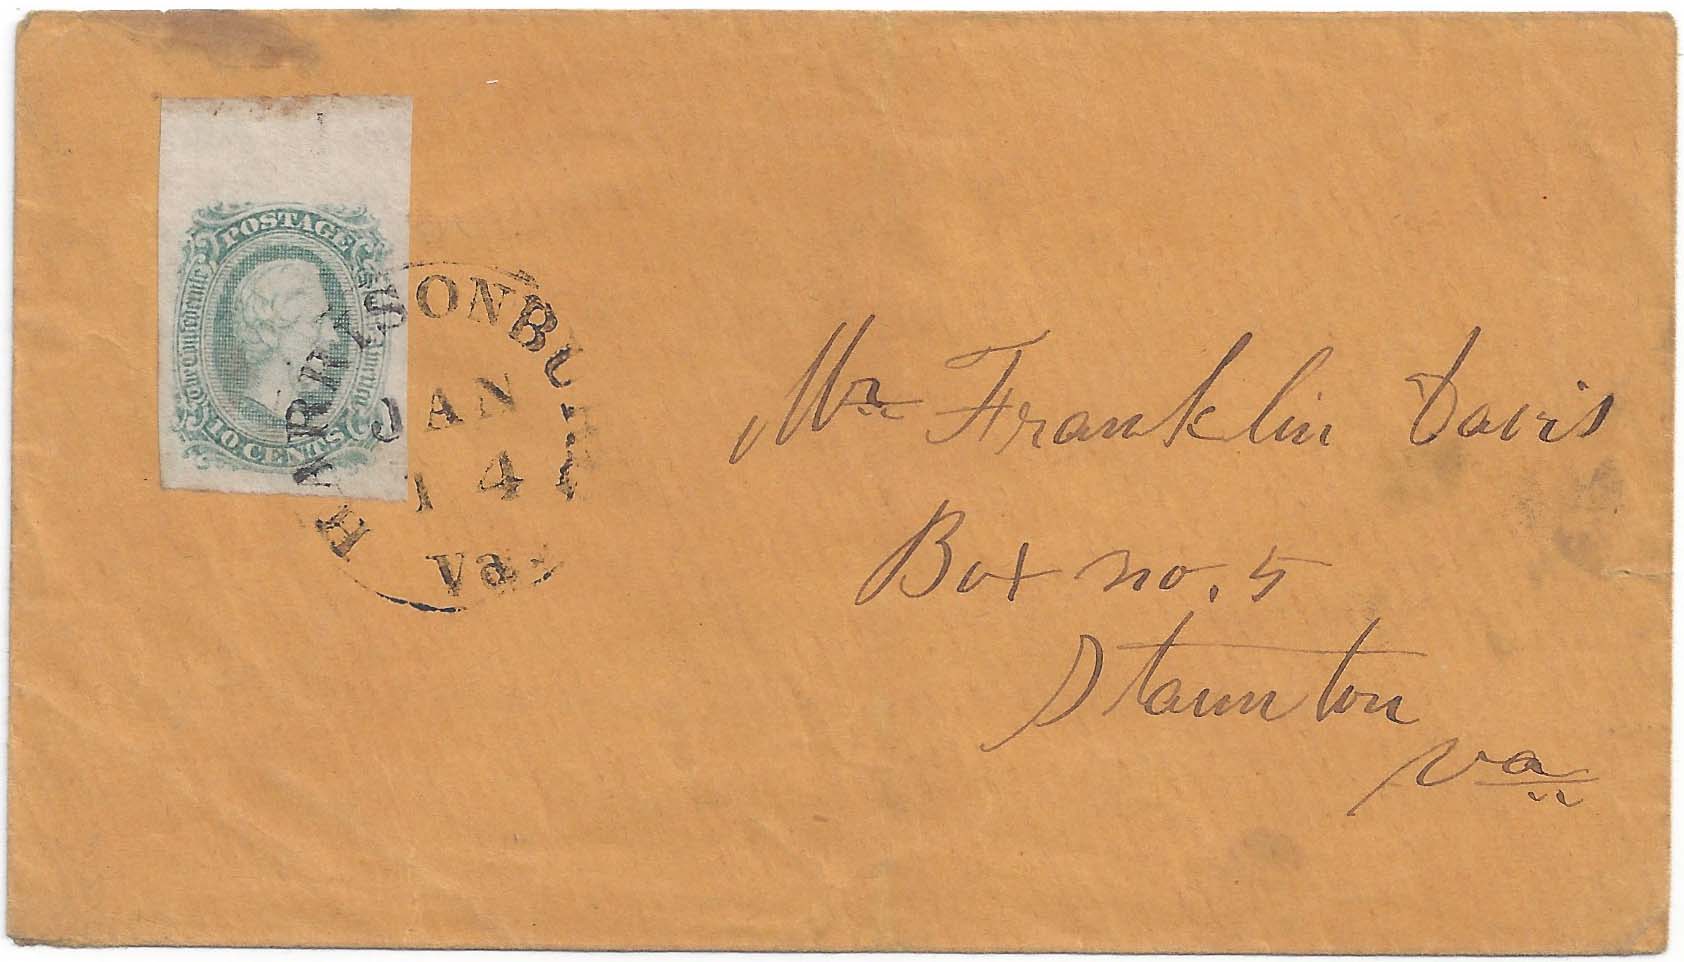 POSTAGE
The Confederate
10 CENTS
HARRISONBU
JAN
14
Va.
Mr Franklin Davis
Box no. 5
Staunton
Va